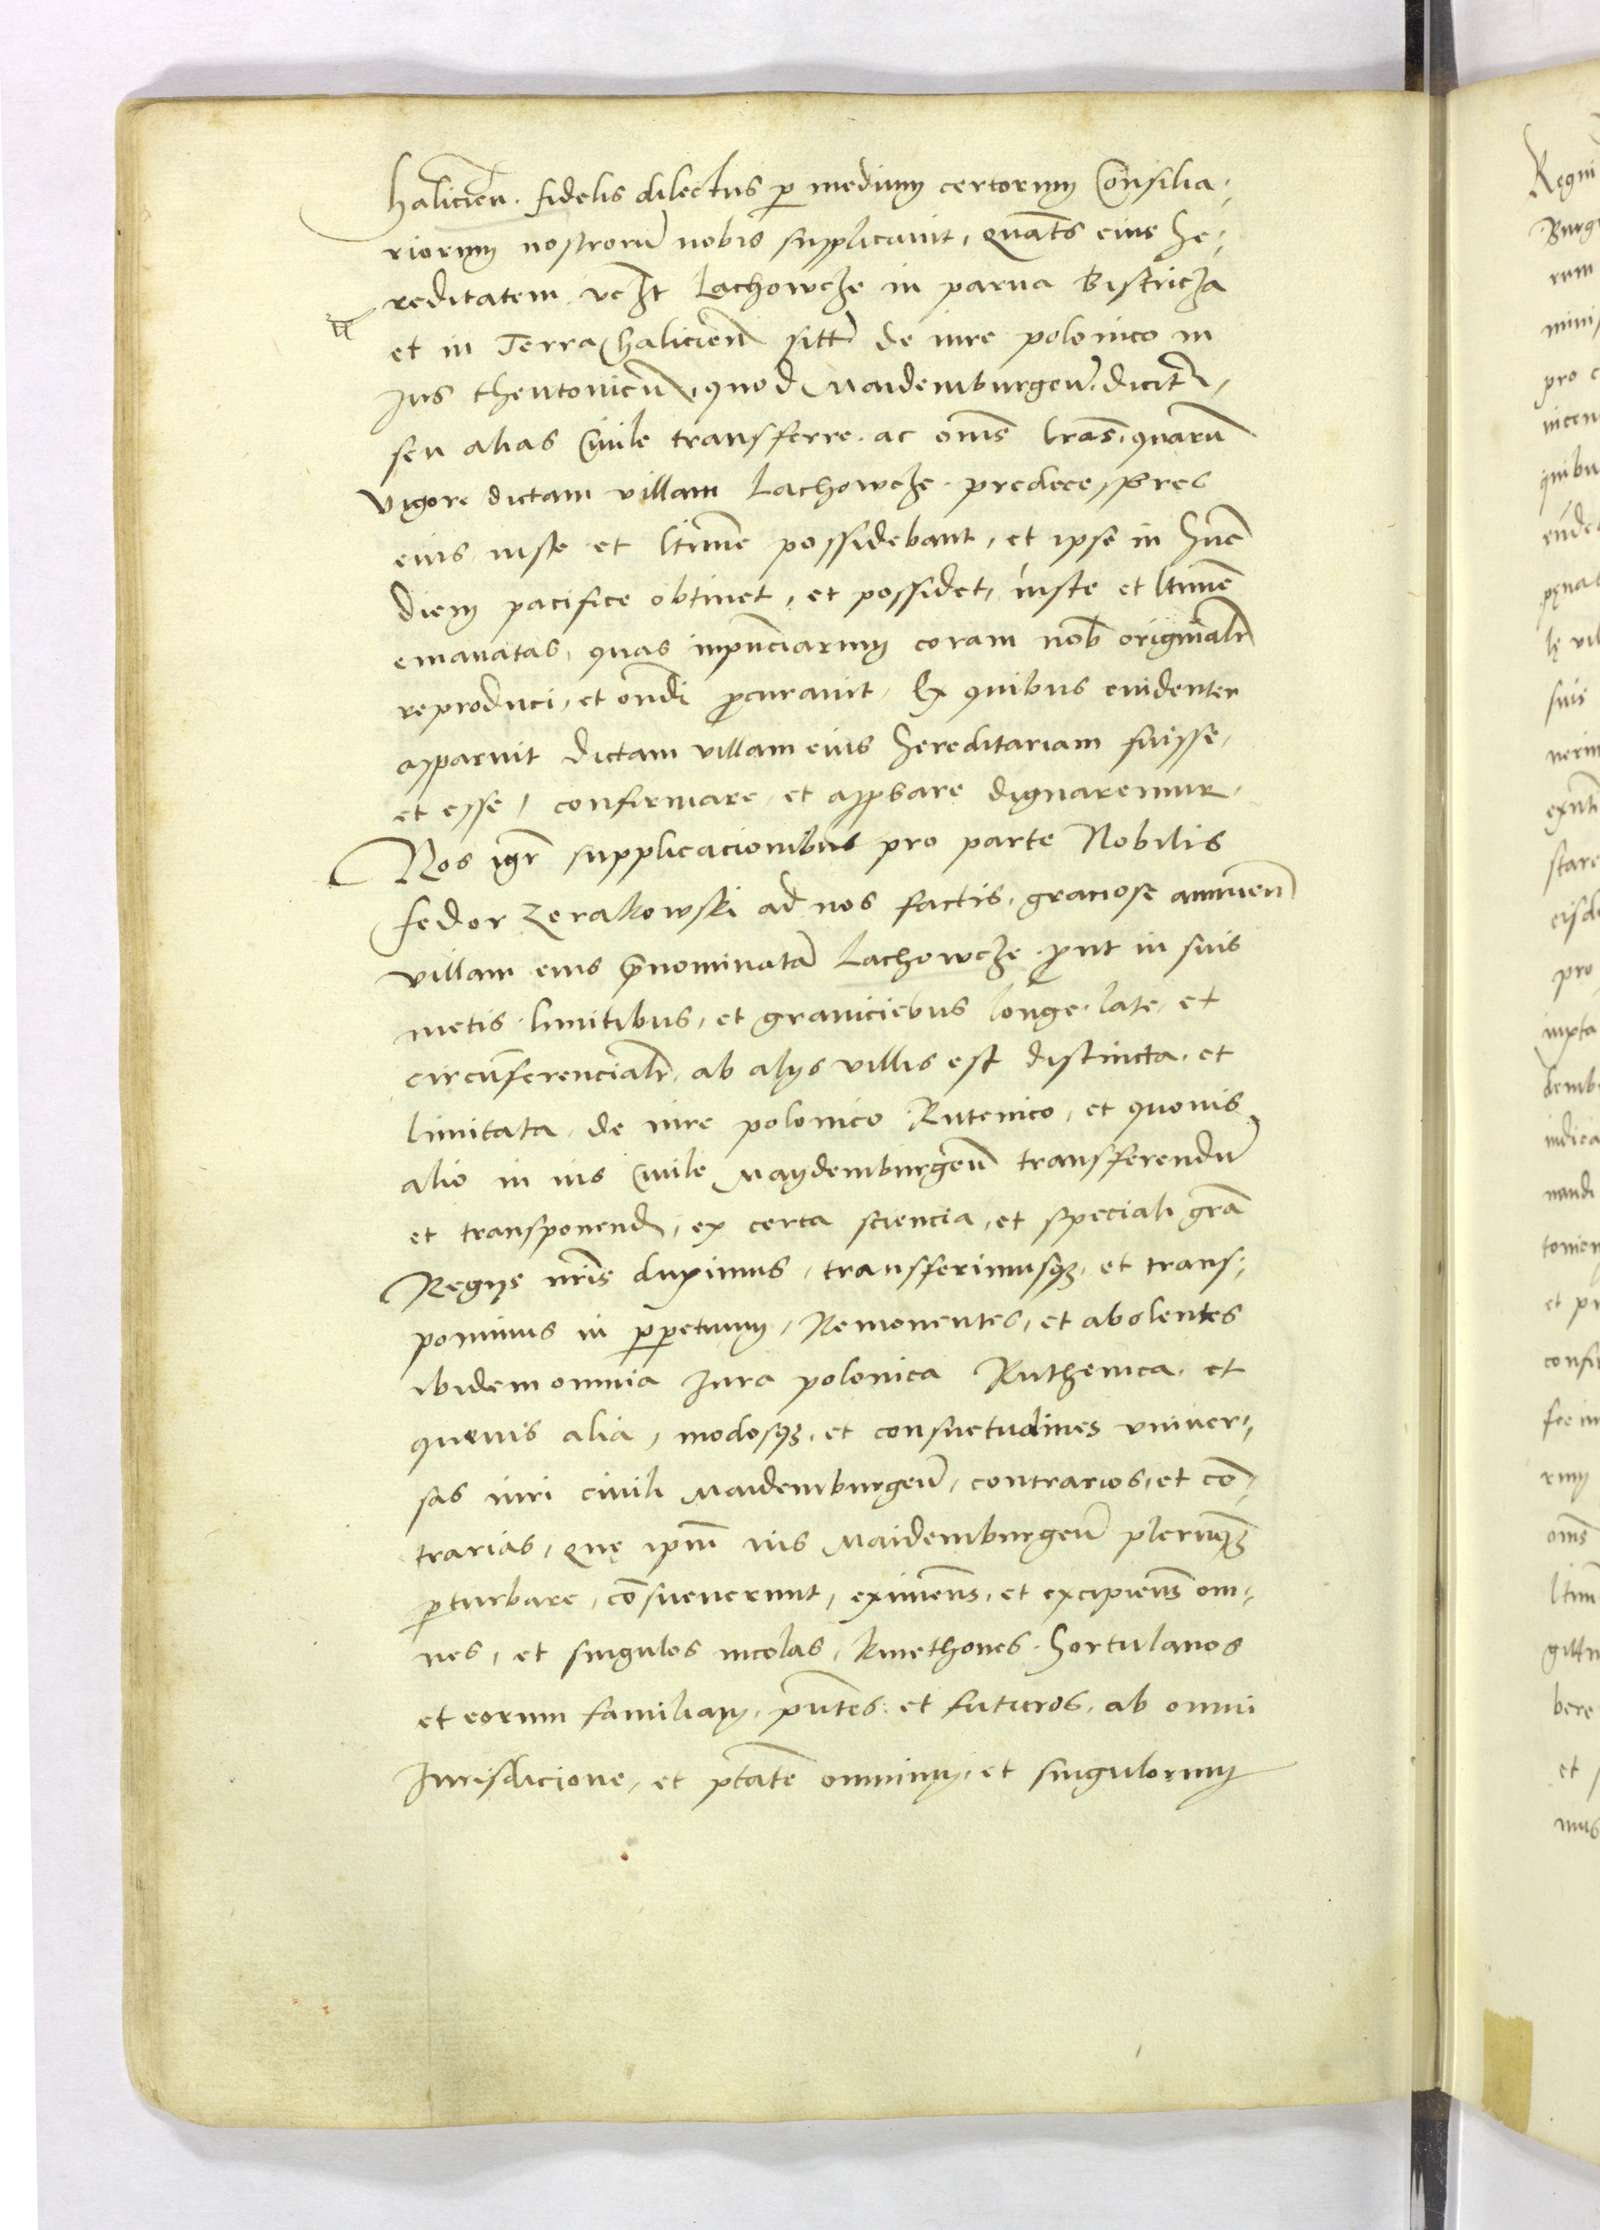 halicien. fidelis dilectus p medium certorum Consilia-
riorum nostroru nobis supplicauit, quats eius he-
reditatem vczlt Lachowcze in parua Bistricza
et in Terra halicien sitt de iure polonico in
Jus theutonicu, quod Maidemburgeñ dicit,
seu alias Ciuile transferre. ac oms lras, quaru
vigore dictam villam Lachowcze predecessores
eius iuste et ltime possidebant, et ipse in hunc
diem pacifice obtinet, et possidet, iuste et ltime
emanatas, quas inpnciarum coram nob originalr
reproduci, et ondi pcurauit. Ex quibus euidenter
apparuit dictam villam eius hereditariam fuisse,
et esse, confirmare et approbare dignaremur.
Nos igr supplicacionibus pro parte Nobilis
Fedor Zerakowski ad nos factis, graciose annuen
villam eius pnominata Lachowcze put in suis
metis limitibus, et graniciebus longe late et
circuferencialr, ab alijs villis est distincta, et
limitata, de iure polonico Rutenico, et quouis
alio in ius Ciuile Maydemburgeñ transferendu
et transponend, ex certa sciencia, et speciali gra
Regijs nris duximus, transferimusq3, et trans-
ponimus in ppetuum, Remouentes, et abolentes
ibidem omnia Jura polonica Ruthenica, et
queuis alia, modosq3, et consuetudines vniuer-
sas iuri ciuili Maidemburgeñ, contrarios, et co-
trarias, quę ipm ius Maidemburgeñ pleruq3
pturbare, cosueuerunt, eximens, et excipiens om-
nes, et singulos incolas, kmethones hortulanos
et eorum familiam, pntes et futuros, ab omni
Jurisdicione, et ptate omnium, et singulorum